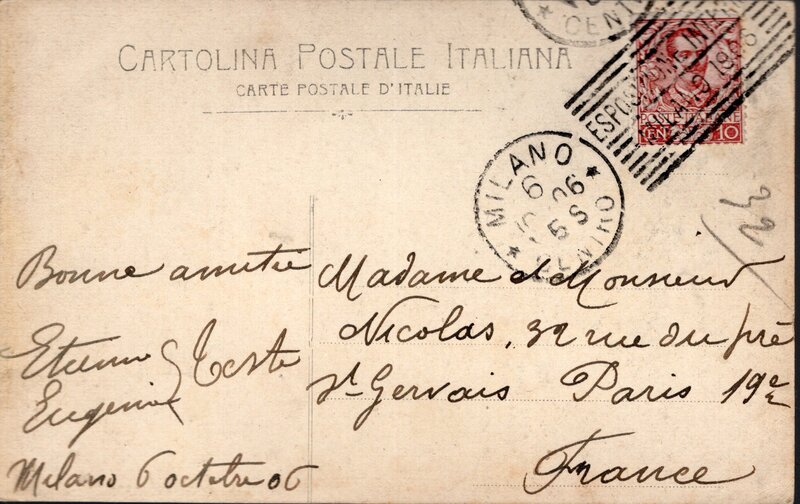 CARTOLINA POSTALE ITALIANA
CARTE POSTALE D'ITALIE
CENT
ESPOSIZIONE INT
1906
POSTE ITALIANE
CEN. 10
MILANO CENTRO
6
06
5 S
23
Bonne amitié
Etienne
Eugénie
Teste
Milano 6 octobre 06
Madame et Monsieur
Nicolas, 32 rue du pré
St Gervais Paris 19e
France